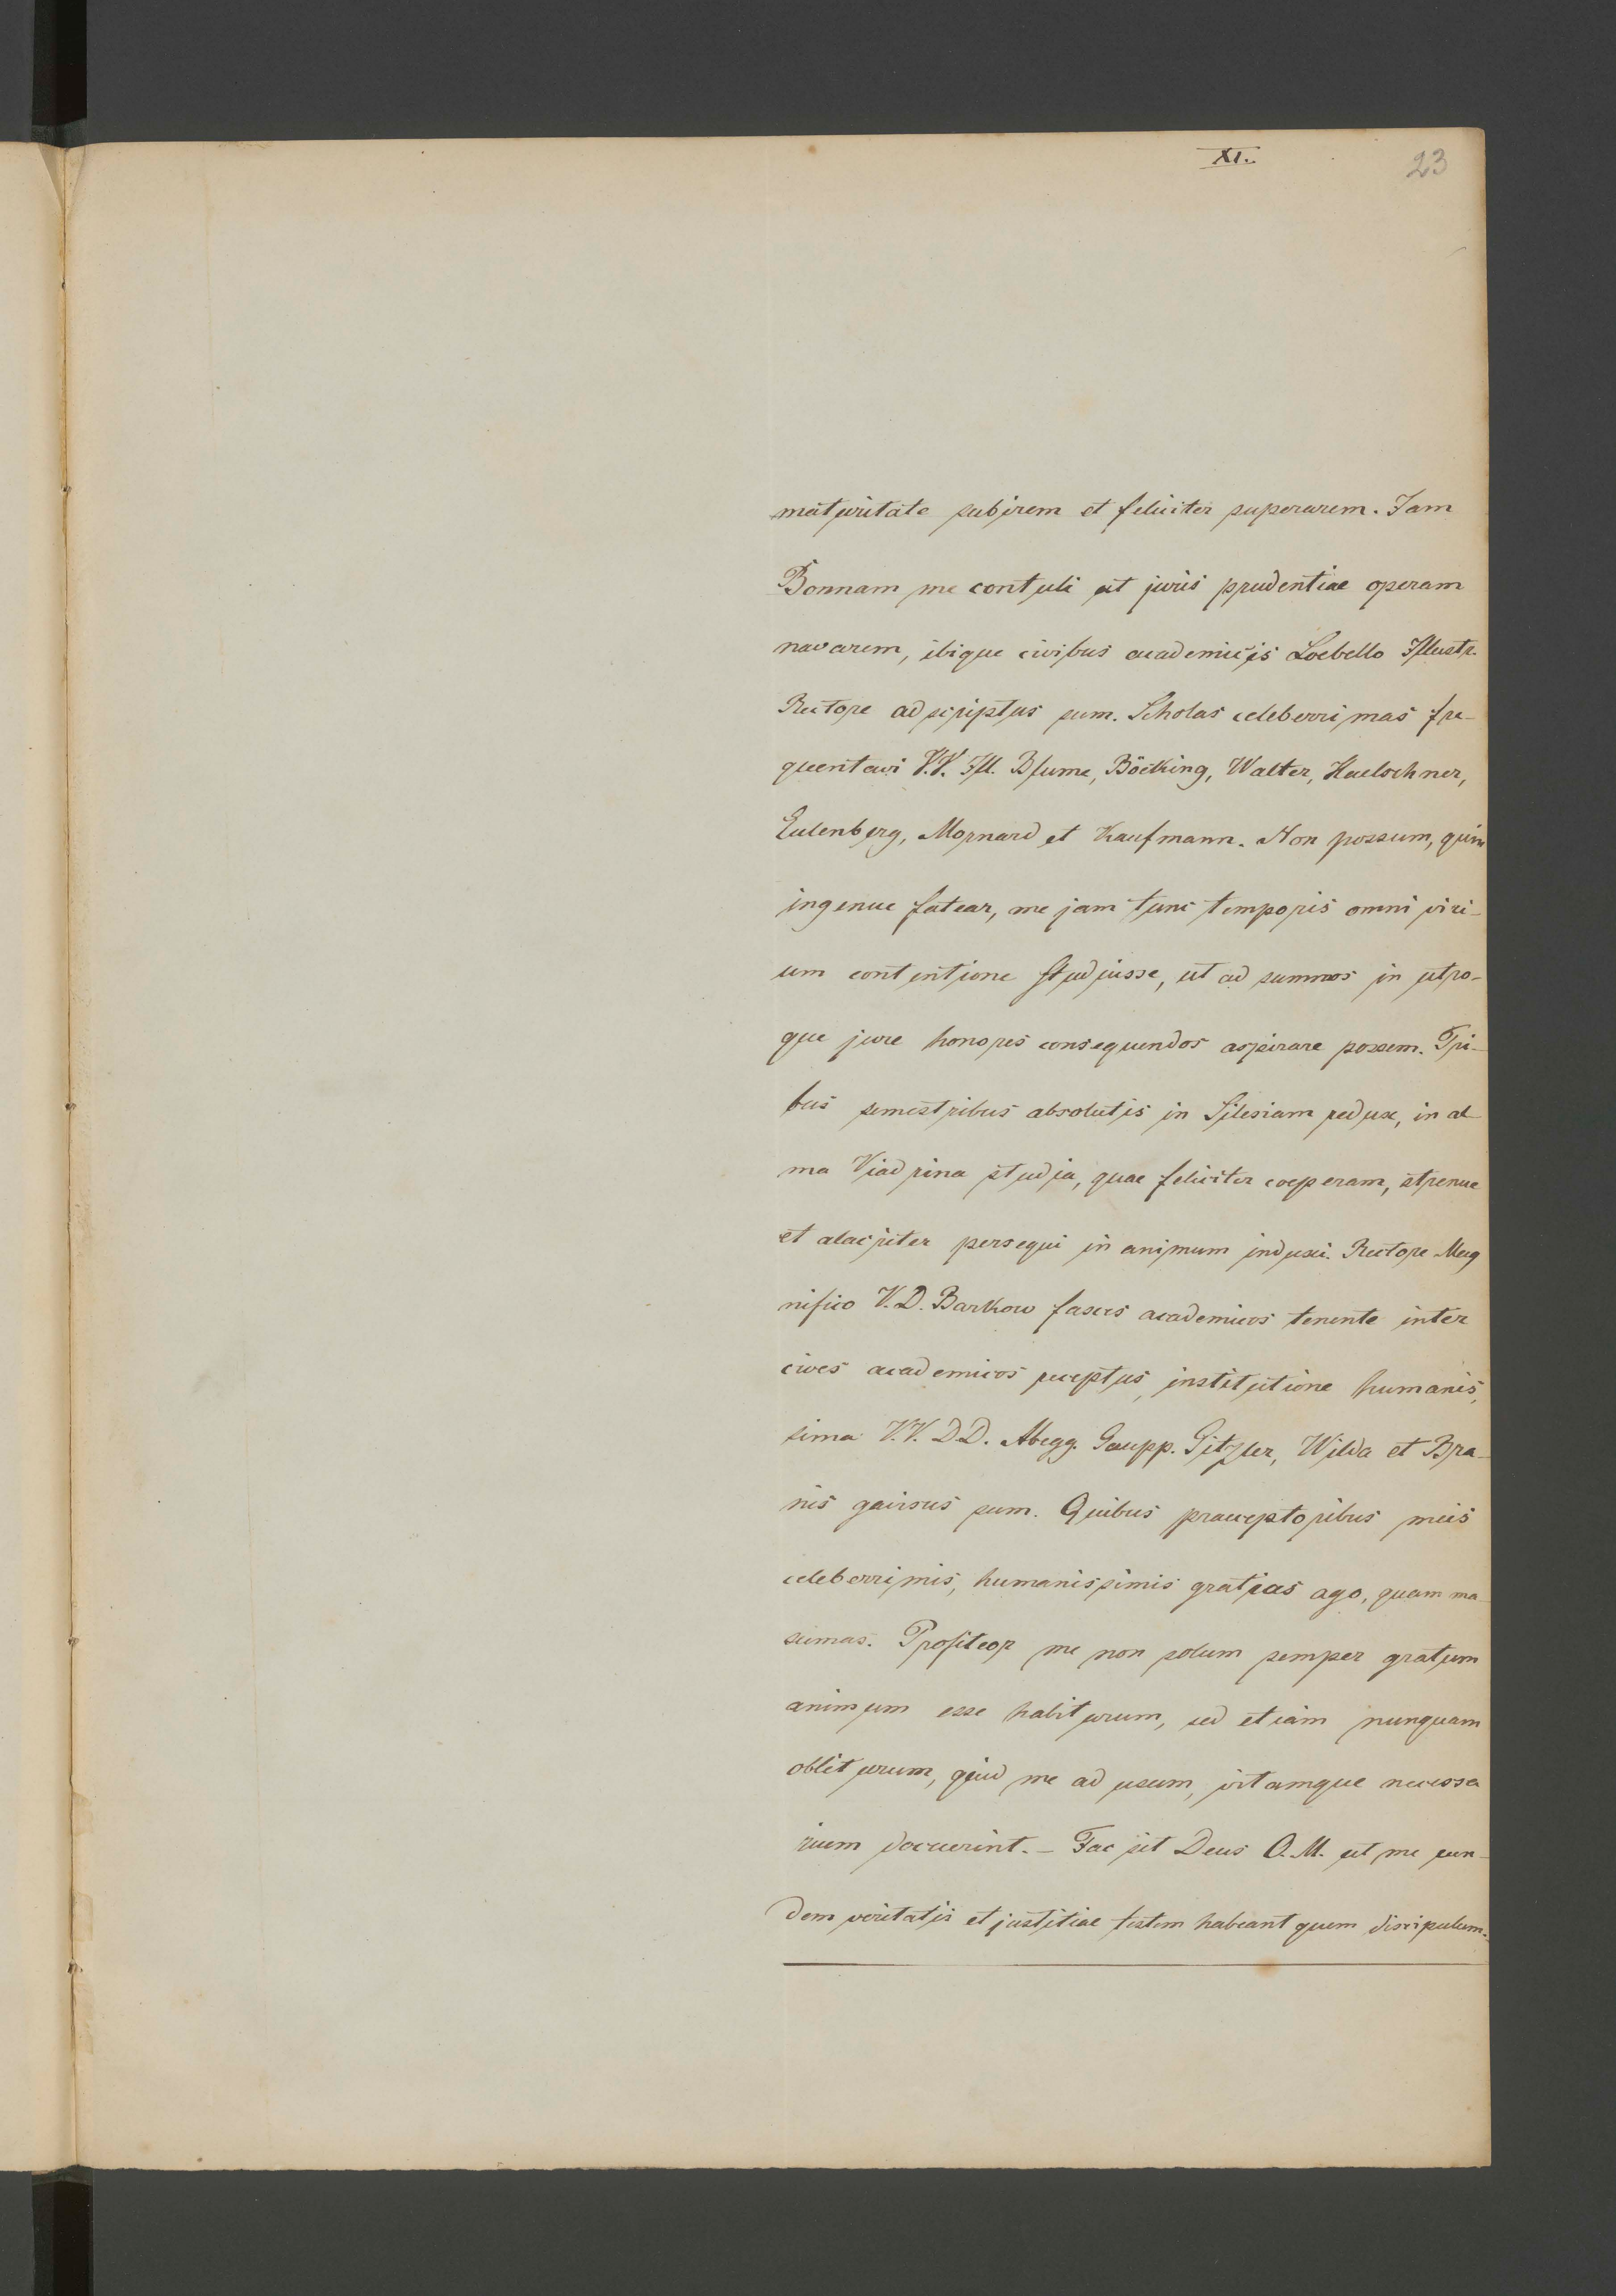 XI.
23
maturitate subirem et feliciter superarem. Jam
Bonnam me contuli ut juris prudentiae operam
navarem, ibique civibus academicis Loebello Illustr.
Rectore adscriptus sum. Scholas celeberrimas fre-
quentavi V.V. Ill. Blume, Böcking, Walter, Haelschner,
Eulenberg, Mornard et Kaufmann. Non possum, quin
ingenue fatear, me jam tunc temporis omni viri-
um contentione studuisse, ut ad summos in utro-
que jure honores consequendos aspirare possem. Tri-
bus semestribus absolutis in Silesiam redux, in al
ma Viadrina studia, quae feliciter coeperam, strenue
et alacriter persequi in animum induxi. Rectore Mag
nifico V.D. Barkow fasces academicos tenente inter
cives academicos receptus, institutione humanis,
sima V.V. D.D. Abegg. Gaupp. Gitzler, Wilda et Bra-
nis gavisus sum. Quibus praeceptoribus meis
celeberrimis, humanissimis gratias ago, quam ma
xumas. Profiteor me non solum semper gratum
animum esse habiturum, sed etiam nunquam
obliturum, quid me ad usum, vitamque necessa
rium docuerint. – Fac sit Deus O.M. ut me eun-
dem veritatis et justitiae testem habeant quem discipulum.